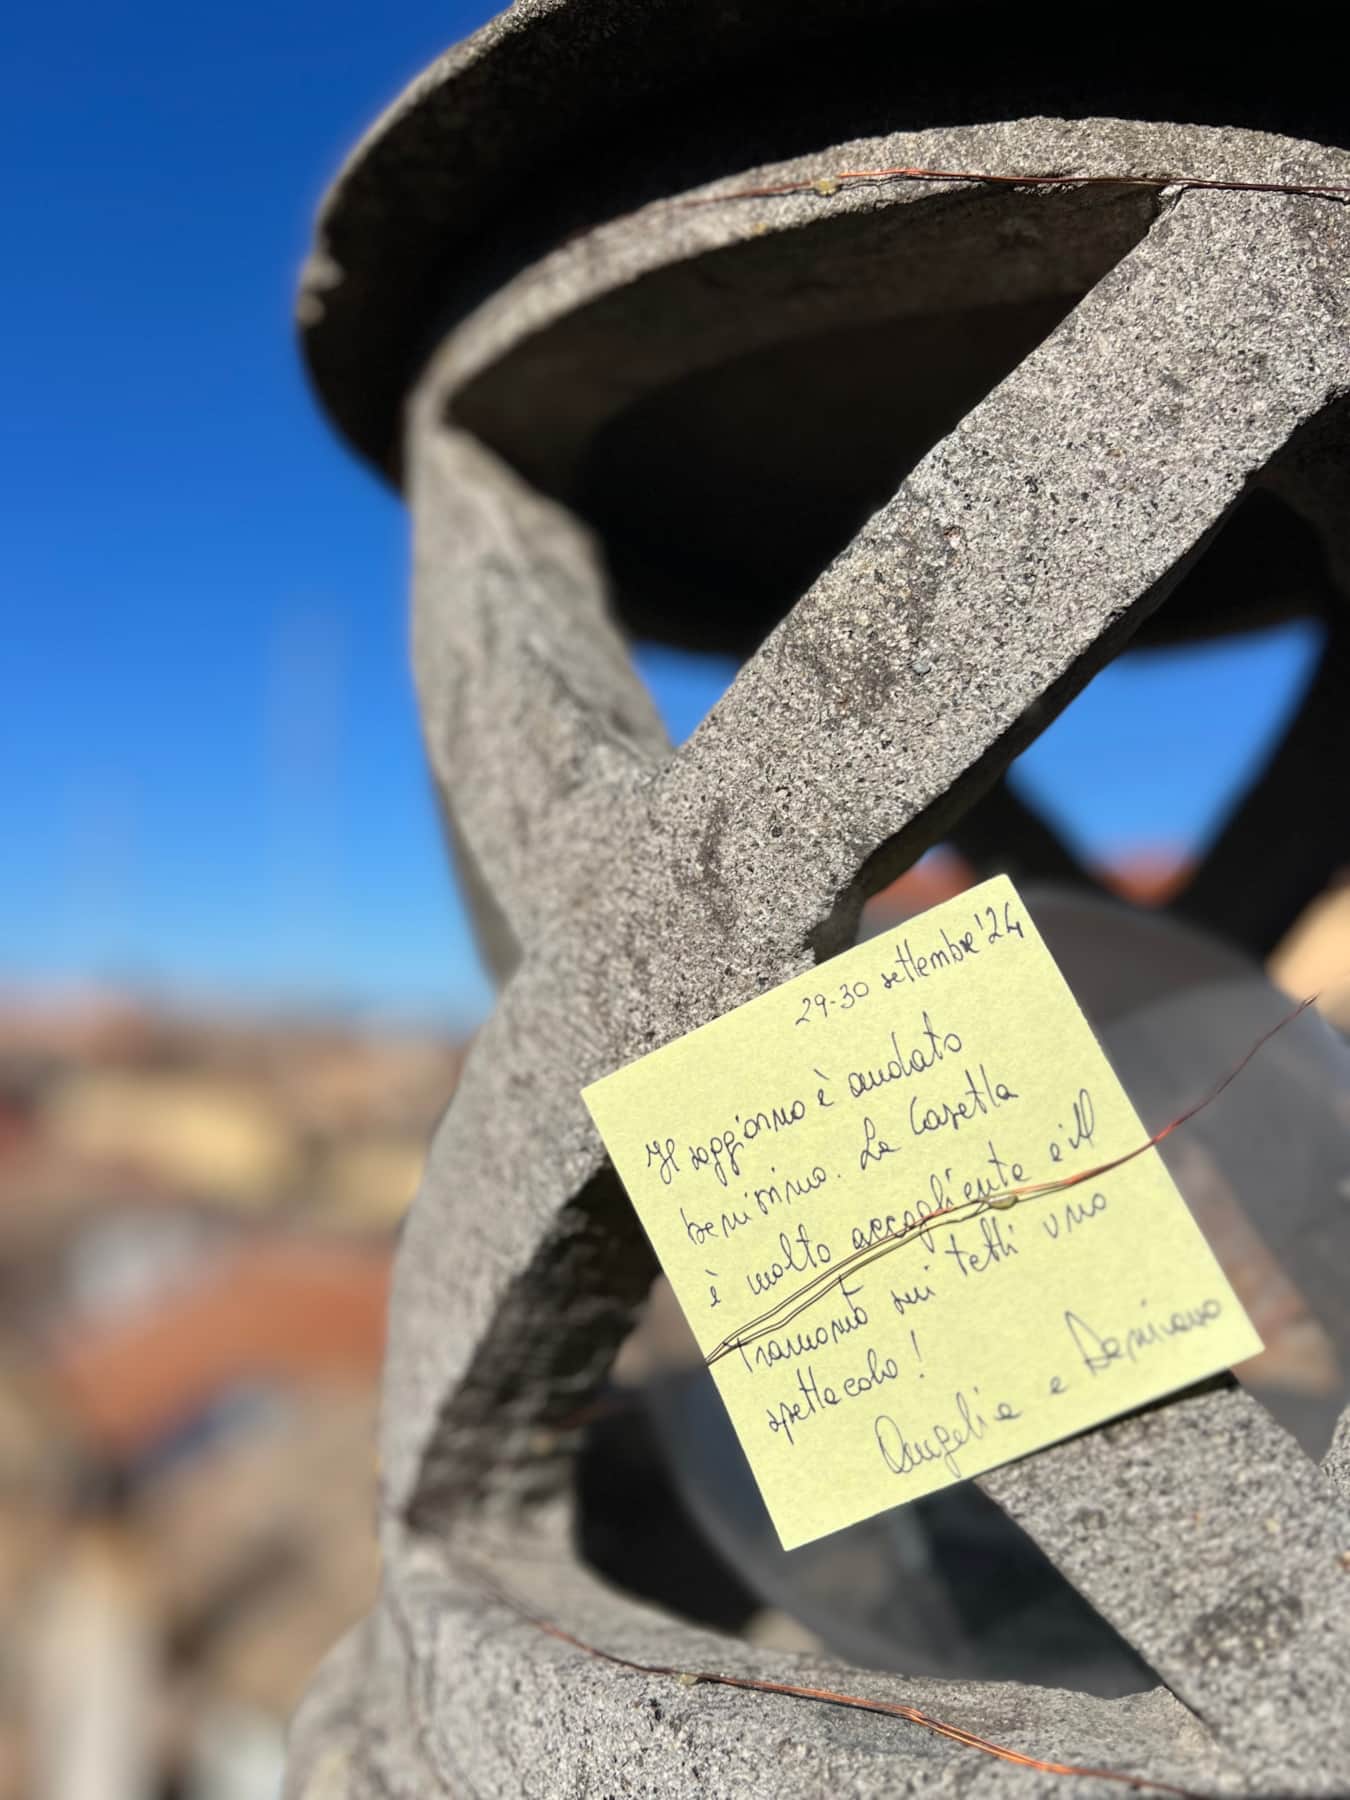 29-30 settembre '24
Il soggiorno è andato
benissimo. La Casetta
è molto accogliente e il
Tramonto sui tetti uno
spettacolo!
Angelia e Damiano